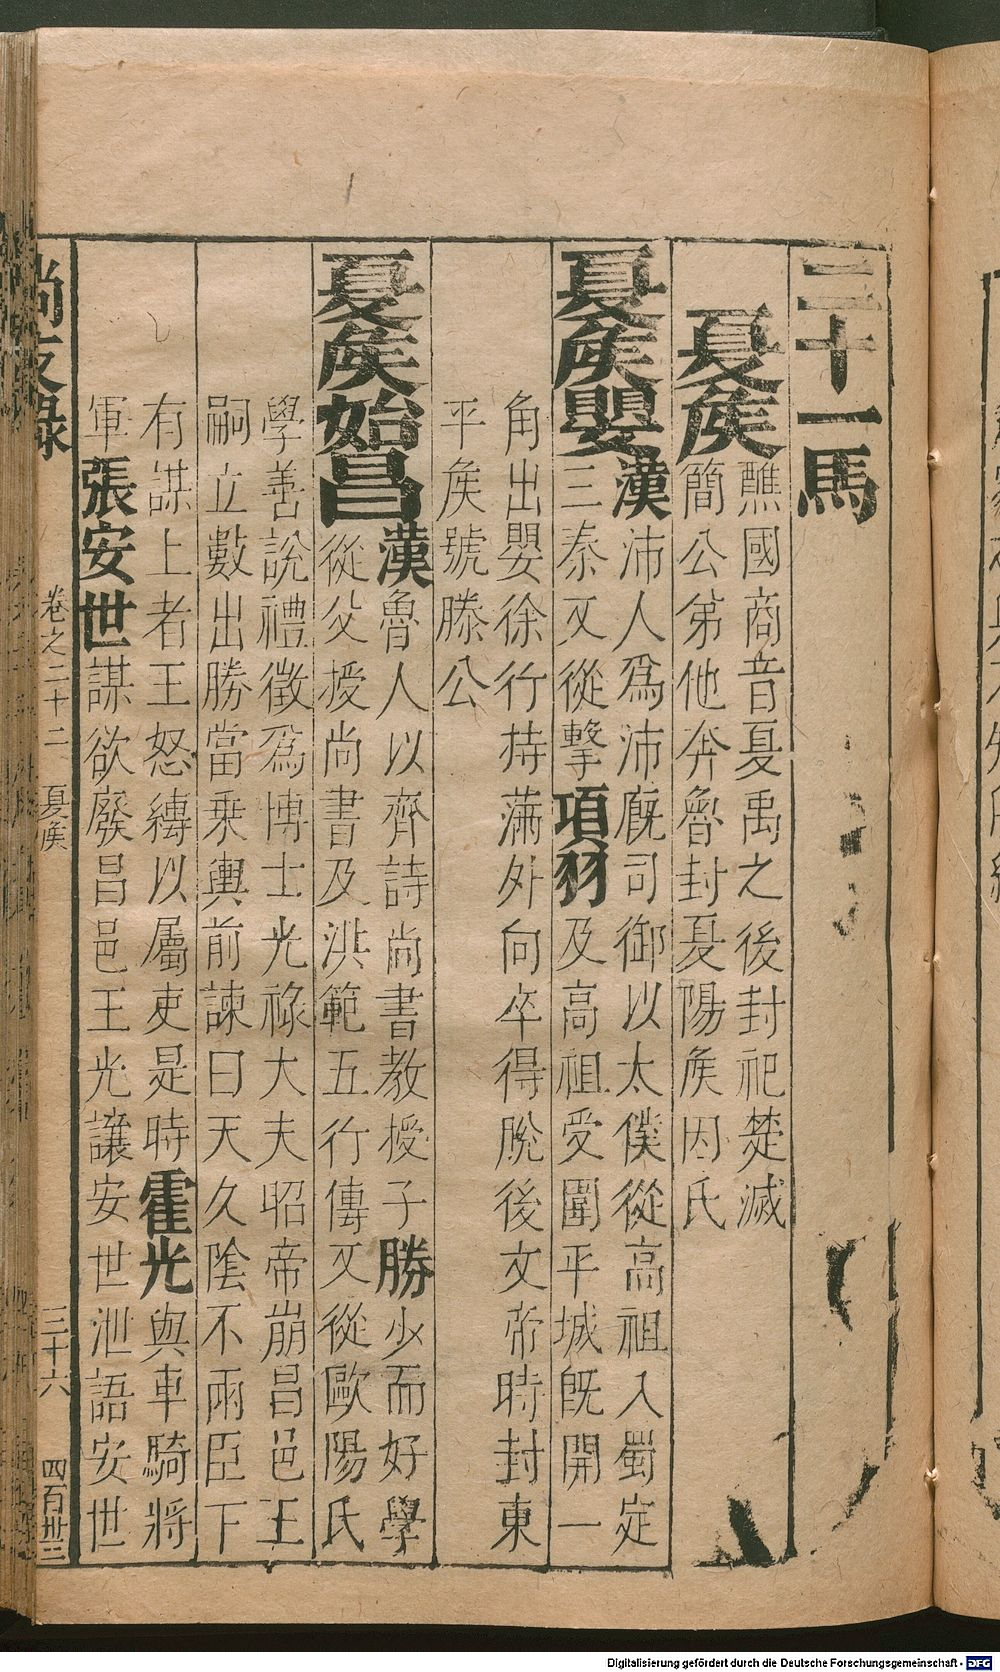 二十一馬
夏矦
醮國商音夏禹之後封祀楚滅
簡公弟他奔魯封夏陽矦因氏
夏矦嬰
漢沛人爲沛廐司御以太僕從高祖入蜀定
三秦又從擊項羽及高祖受圍平城旣開一
角出嬰徐行持滿外向卒得脫後文帝時封東
平矦號滕公
夏矦始昌
漢魯人以齊詩尚書教授子勝少而好學
從父授尚書及洪範五行傳又從歐陽氏
學善說禮徵爲博士光祿大夫昭帝崩昌邑王
嗣立數出勝當乗輿前諫曰天久陰不雨臣下
有謀上者王怒縛以屬吏是時霍光與車騎將
軍張安世謀欲廢昌邑王光讓安世泄語安世
尚友錄 卷之二十二 夏矦 三十六 四百卅三
Digitalisierung gefördert durch die Deutsche Forschungsgemeinschaft - DFG